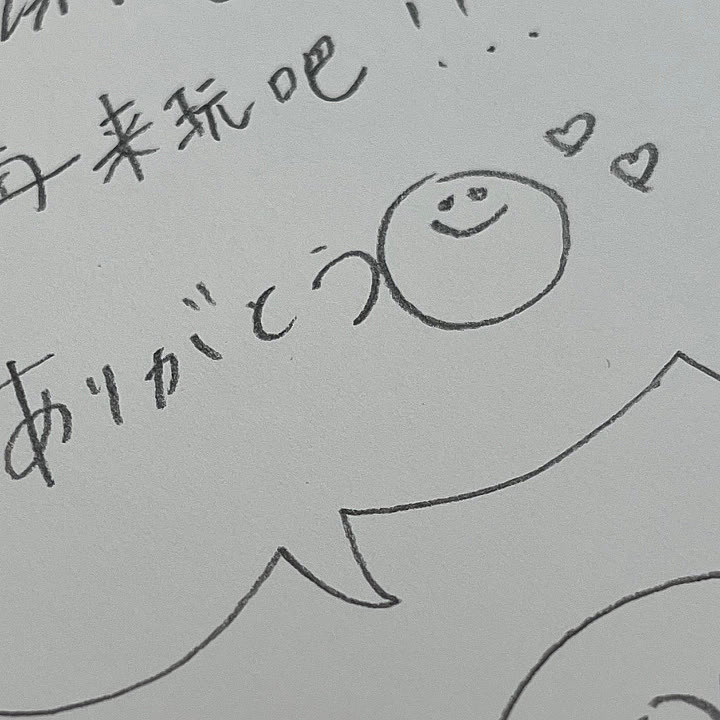 再来玩吧!!!
ありがとう